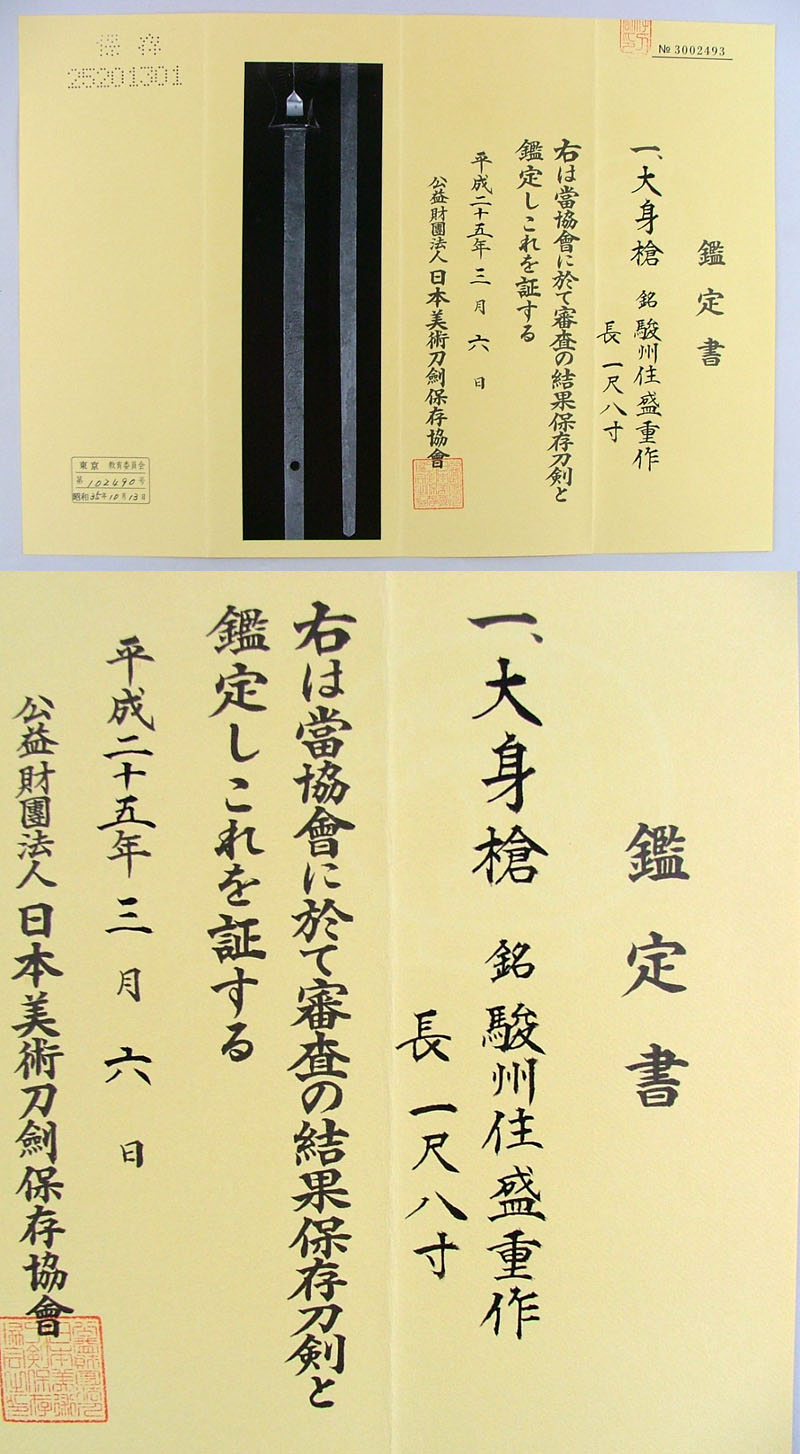 № 3002493
鑑定書
一、大身槍 銘 駿州住盛重作
長 一尺八寸
右は當協會に於て審査の結果保存刀剣と
鑑定しこれを証する
平成二十五年三月六日
公益財團法人日本美術刀劍保存協會
保存
25201301
東京 教育委員会
第102490号
昭和35年10月13日
鑑定書
一、大身槍 銘 駿州住盛重作
長 一尺八寸
右は當協會に於て審査の結果保存刀剣と
鑑定しこれを証する
平成二十五年三月六日
公益財團法人日本美術刀劍保存協會